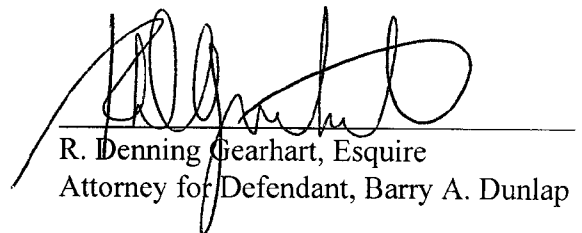 R. Denning Gearhart, Esquire
Attorney for Defendant, Barry A. Dunlap